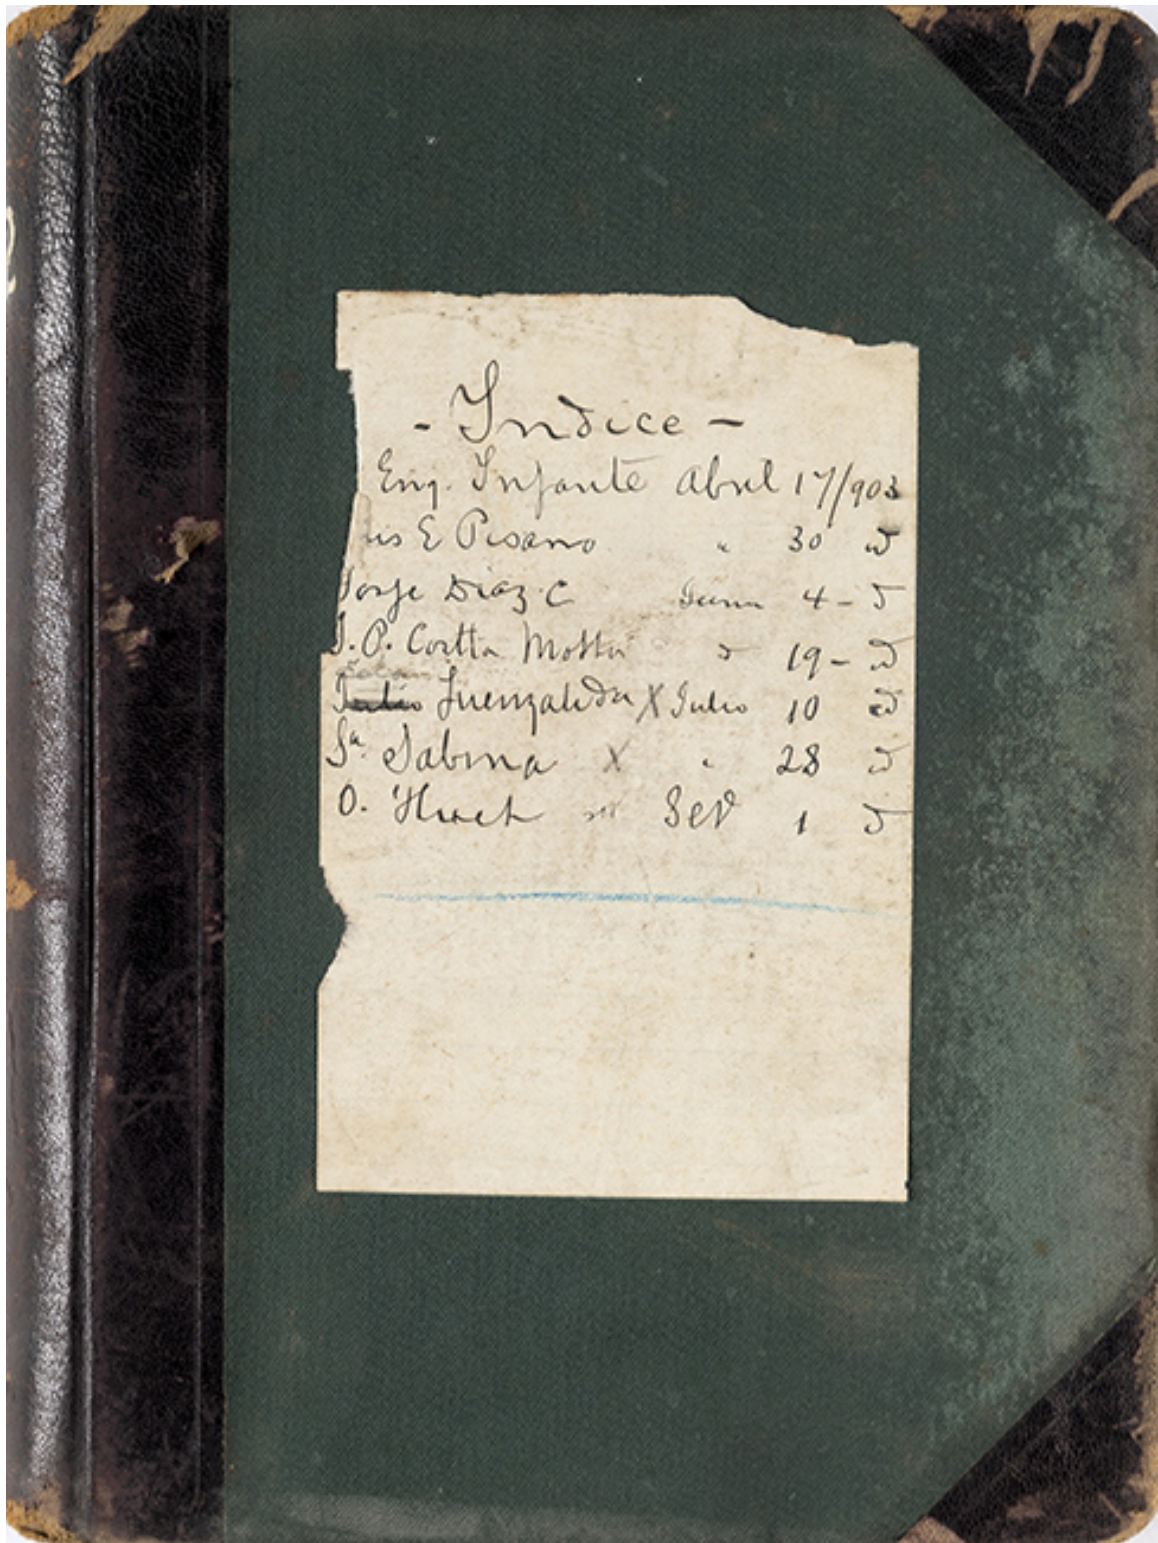 - Indice -
Eug. Infante Abril 17/903
uis E Pisano " 30 id
Jorje Diaz C Junio 4 - d
J. P. Cortta Motta d 19 - id
Julio Fuenzalida X Julio 10 id
Sª. Sabina X " 28 id
O. Huet Set 1 d